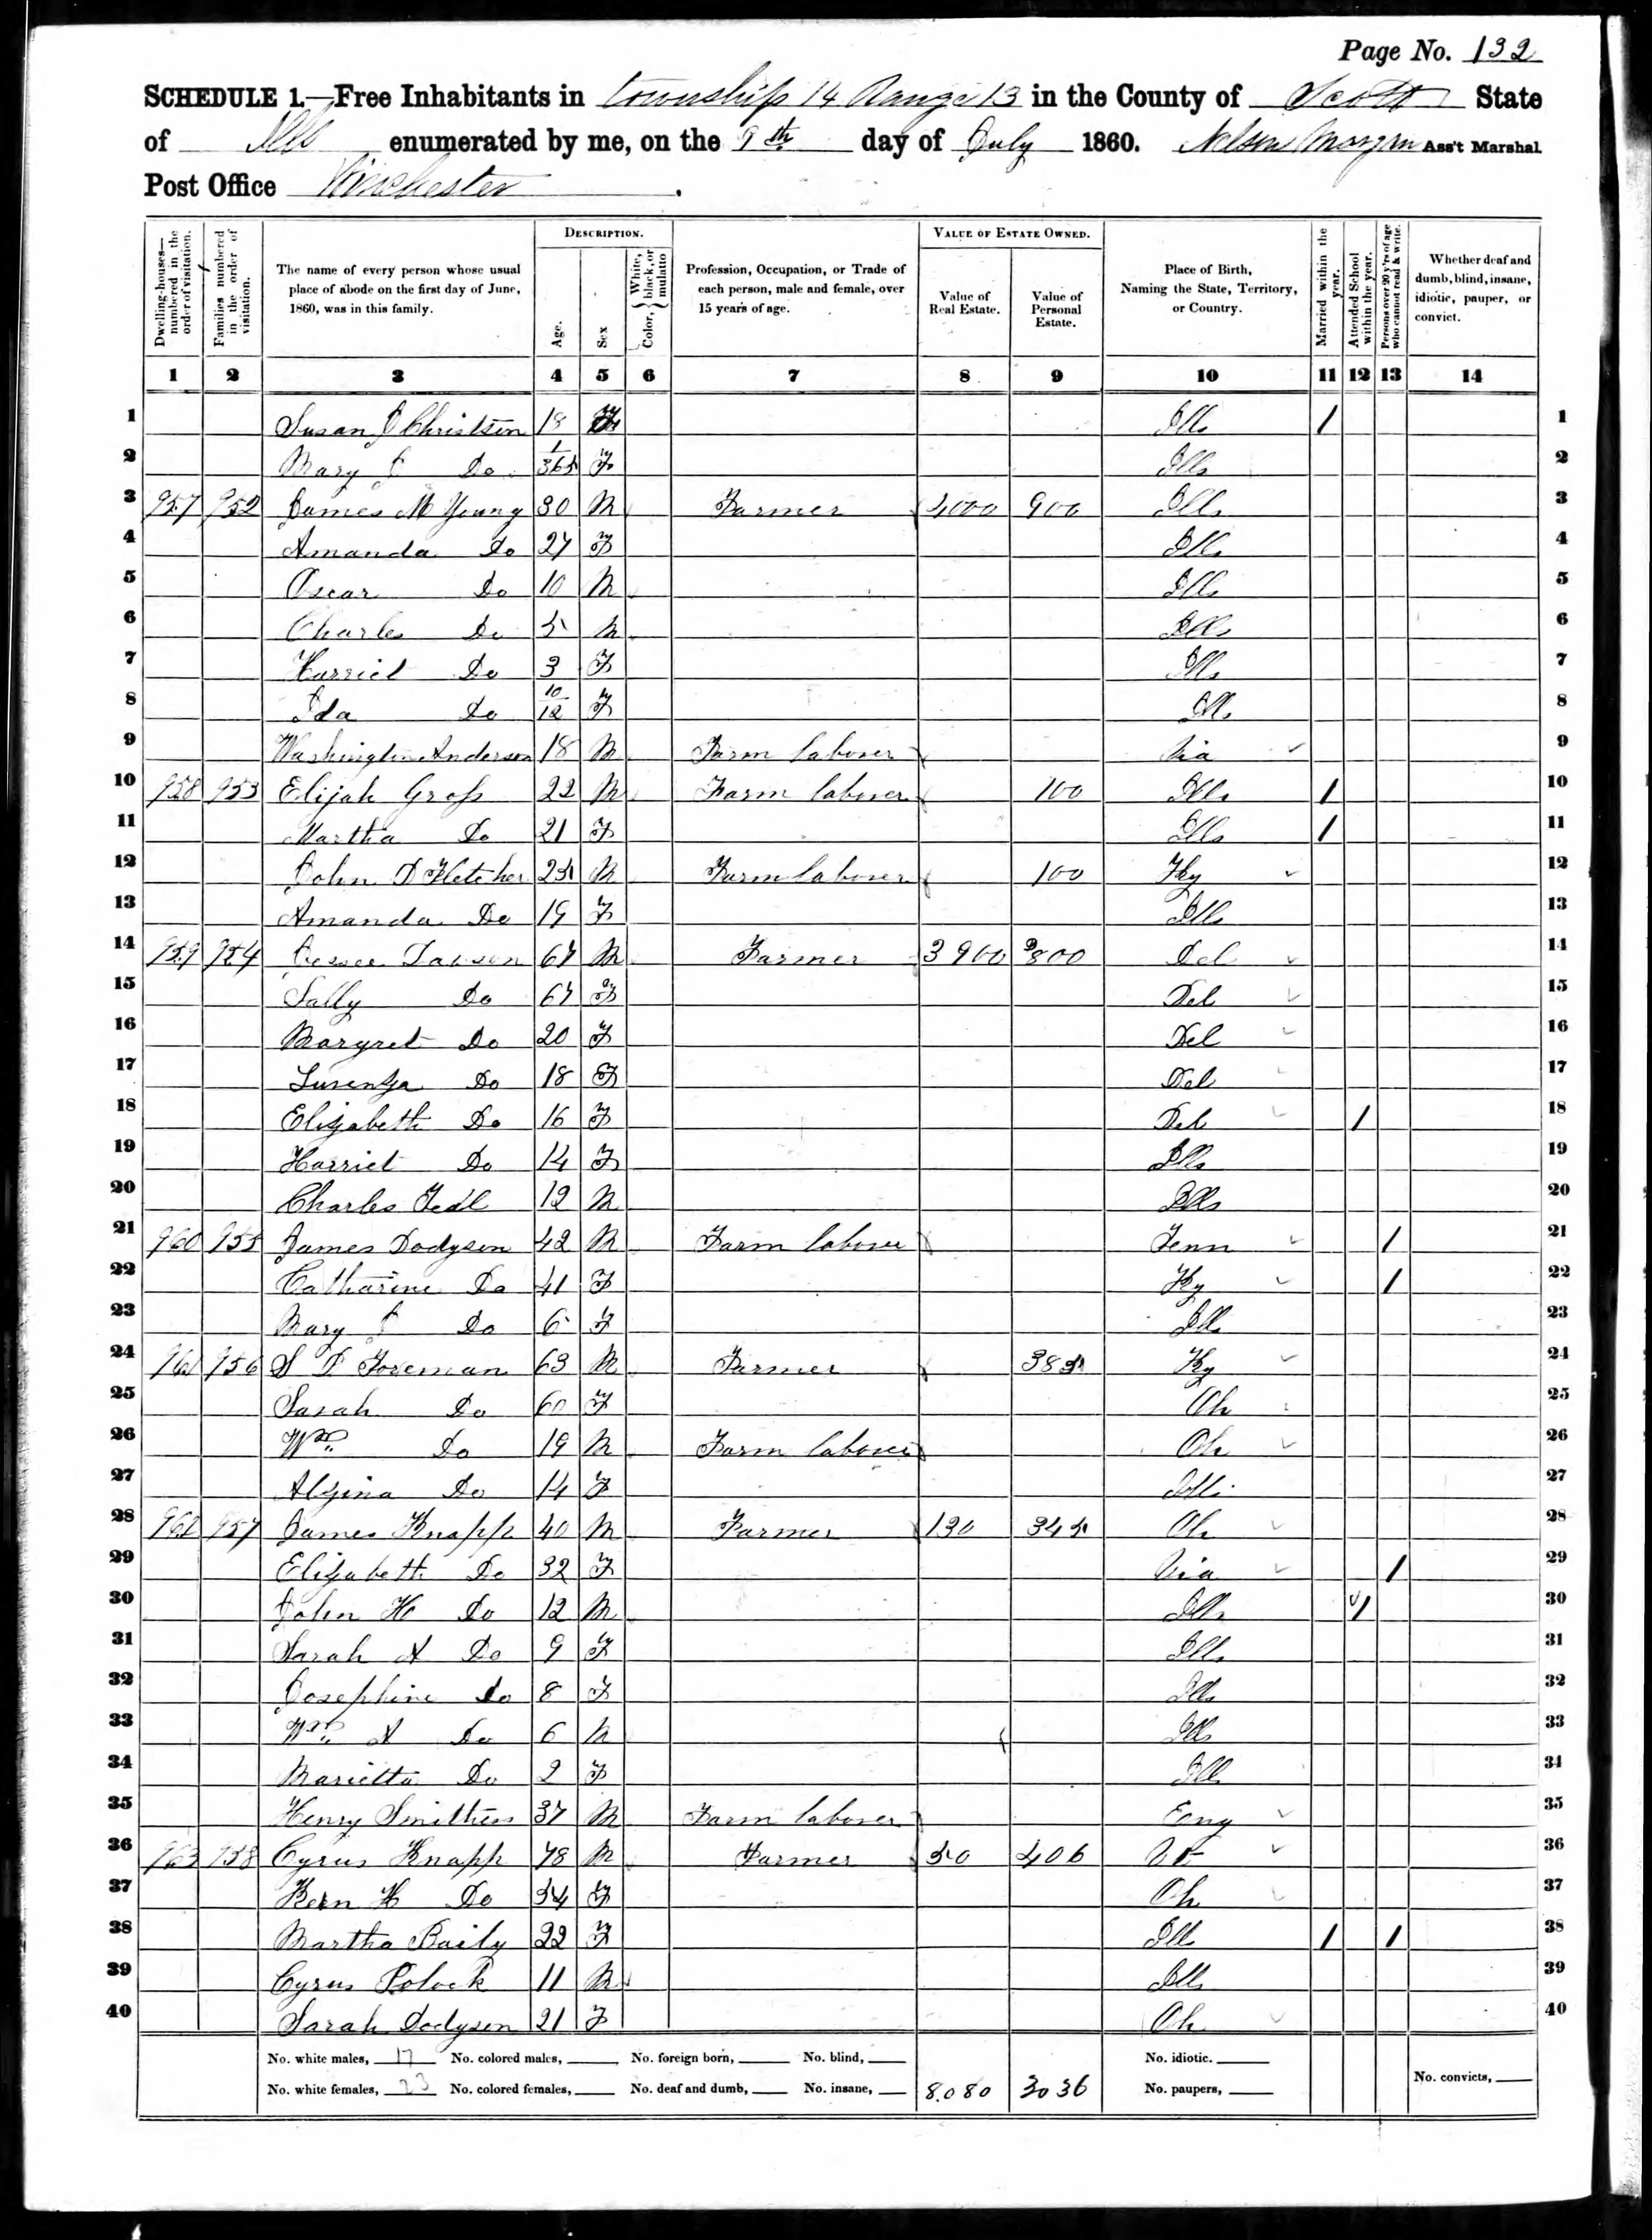 Page No. 132
SCHEDULE 1.—Free Inhabitants in township 14 Range 13 in the County of Scott State
of Ills enumerated by me, on the 9th day of July 1860. Nelson Morgan Ass't Marshal
Post Office Winchester.
DESCRIPTION. VALUE OF ESTATE OWNED.
Dwelling-houses—numbered in the order of visitation. Families numbered in the order of visitation. The name of every person whose usual place of abode on the first day of June, 1860, was in this family. Age. Sex Color, { White, black, or mulatto Profession, Occupation, or Trade of each person, male and female, over 15 years of age. Value of Real Estate. Value of Personal Estate. Place of Birth, Naming the State, Territory, or Country. Married within the year. Attended School within the year. Persons over 20 y'rs of age who cannot read & write. Whether deaf and dumb, blind, insane, idiotic, pauper, or convict.
1 2 3 4 5 6 7 8 9 10 11 12 13 14
1 Susan J Christson 18 F Ills / 1
2 Mary J Do 1/365 F Ills 2
3 957 952 James M Young 30 M Farmer 4000 900 Ills 3
4 Amanda Do 27 F Ills 4
5 Oscar Do 10 M Ills 5
6 Charles Do 5 M Ills 6
7 Harriet Do 3 F Ills 7
8 Ida Do 10/12 F Ills 8
9 Washington Anderson 18 M Farm laborer Via 9
10 958 953 Elijah Gross 22 M Farm laborer 100 Ills / 10
11 Martha Do 21 F Ills / 11
12 John D Fletcher 25 M Farm laborer 100 Ky 12
13 Amanda Do 19 F Ills 13
14 959 954 67 M Farmer 3900 800 Del 14
15 Sally Do 67 F Del 15
16 Margret Do 20 F Del 16
17 Do 18 F Del 17
18 Elizabeth Do 16 F Del / 18
19 Harriet Do 14 F Ills 19
20 Charles 12 M Ills 20
21 960 955 James Dodgson 42 M Farm laborer Tenn / 21
22 Catharine Do 41 F Ky / 22
23 Mary J Do 6 F Ills 23
24 961 956 S D Foreman 63 M Farmer 385 Ky 24
25 Sarah Do 60 F Oh 25
26 Wm. Do 19 M Farm laborer Oh 26
27 Alzina Do 14 F Ills 27
28 962 957 James Knapp 40 M Farmer 130 345 Oh 28
29 Elizabeth Do 32 F Via / 29
30 John H Do 12 M Ills / 30
31 Sarah A Do 9 F Ills 31
32 Josephine Do 8 F Ills 32
33 Wm. A Do 6 M Ills 33
34 Marietta Do 2 F Ills 34
35 Henry Smithers 37 M Farm laborer Eng 35
36 963 958 Cyrus Knapp 48 M Farmer 50 406 Vt 36
37 H Do 54 F Oh 37
38 Martha Baily 22 F Ill / / 38
39 Cyrus Polock 11 M Ills 39
40 Sarah Dodgson 21 F Oh 40
No. white males, 17 No. colored males, No. foreign born, No. blind, No. idiotic.
No. white females, 23 No. colored females, No. deaf and dumb, No. insane, 8.080 3036 No. paupers, No. convicts,